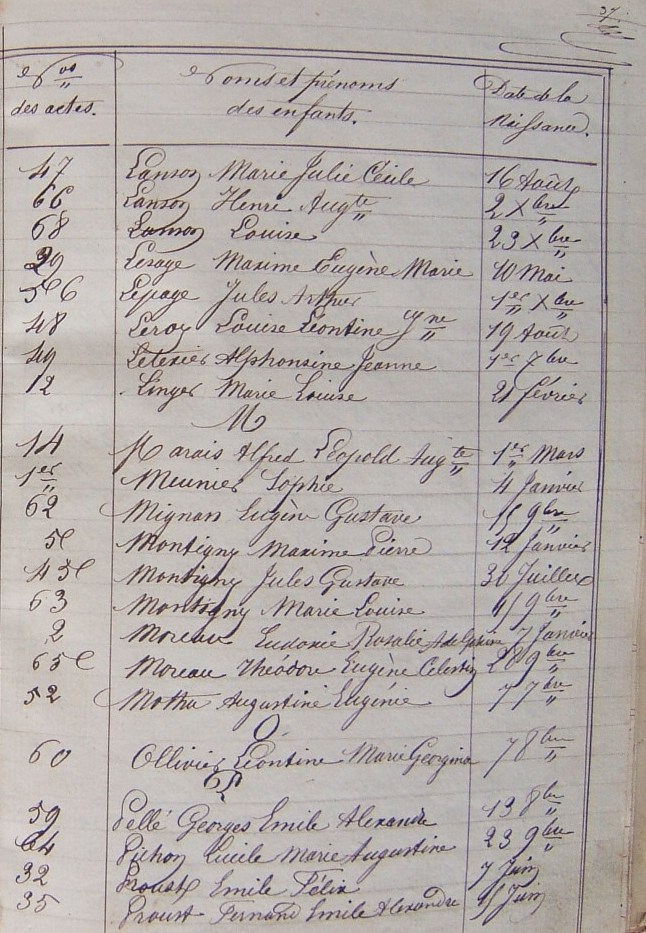 37.
Nos Noms et prénoms Date de la
des actes. des enfants. Naissance.
47 Lanson Marie Julie Cécile 16 Août
66 Lanson Henri Augte 2 Xbre
68 Lanson Louise 23 Xbre
29 Lesage Maxime Eugène Marie 10 Mai
56 Lepage Jules Arthur 1er Xbre
48 Leroy Louise Léontine 19 Août
49 Letexier Alphonsine Jeanne 1er 7bre
12 Linger Marie Louise 21 février
M
14 Marais Alfred Léopold Augte 1er Mars
1er Meunier Sophie 4 Janvier
62 Mignan Eugène Gustave 15 9bre
5 Montigny Maxime Pierre 12 Janvier
45 Montigny Jules Gustave 30 Juillet
63 Montigny Marie Louise 9bre
2 Moreau Eudoxie Rosalie Adelphine 7 Janvier
65 Moreau Théodore Eugène Célestin 28 9bre
52 Motha Augustine Eugénie 7 7bre
O
60 Ollivier Léontine Marie Georgina 7 8bre
P
59 Pellé Georges Emile Alexandre 13 8bre
64 Pichon Lucile Marie Augustine 23 9bre
32 Proust Emile Félix 7 Juin
35 Proust Fernand Emile Alexandre 15 Juin